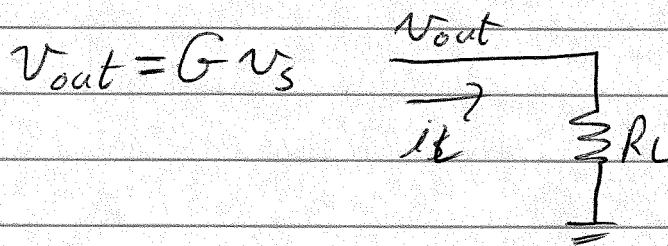 v_out = G v_s
v_out
R_L